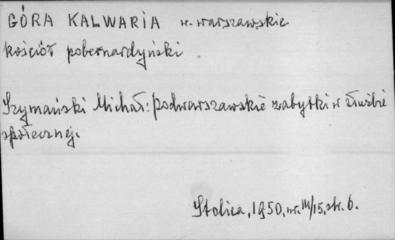 GÓRA KALWARIA w. warszawskie
kościół pobernardyński
Szymański Michał: Podwarszawskie zabytki w służbie
społecznej.
Stolica, 1950, nr. III/15, str. 6.